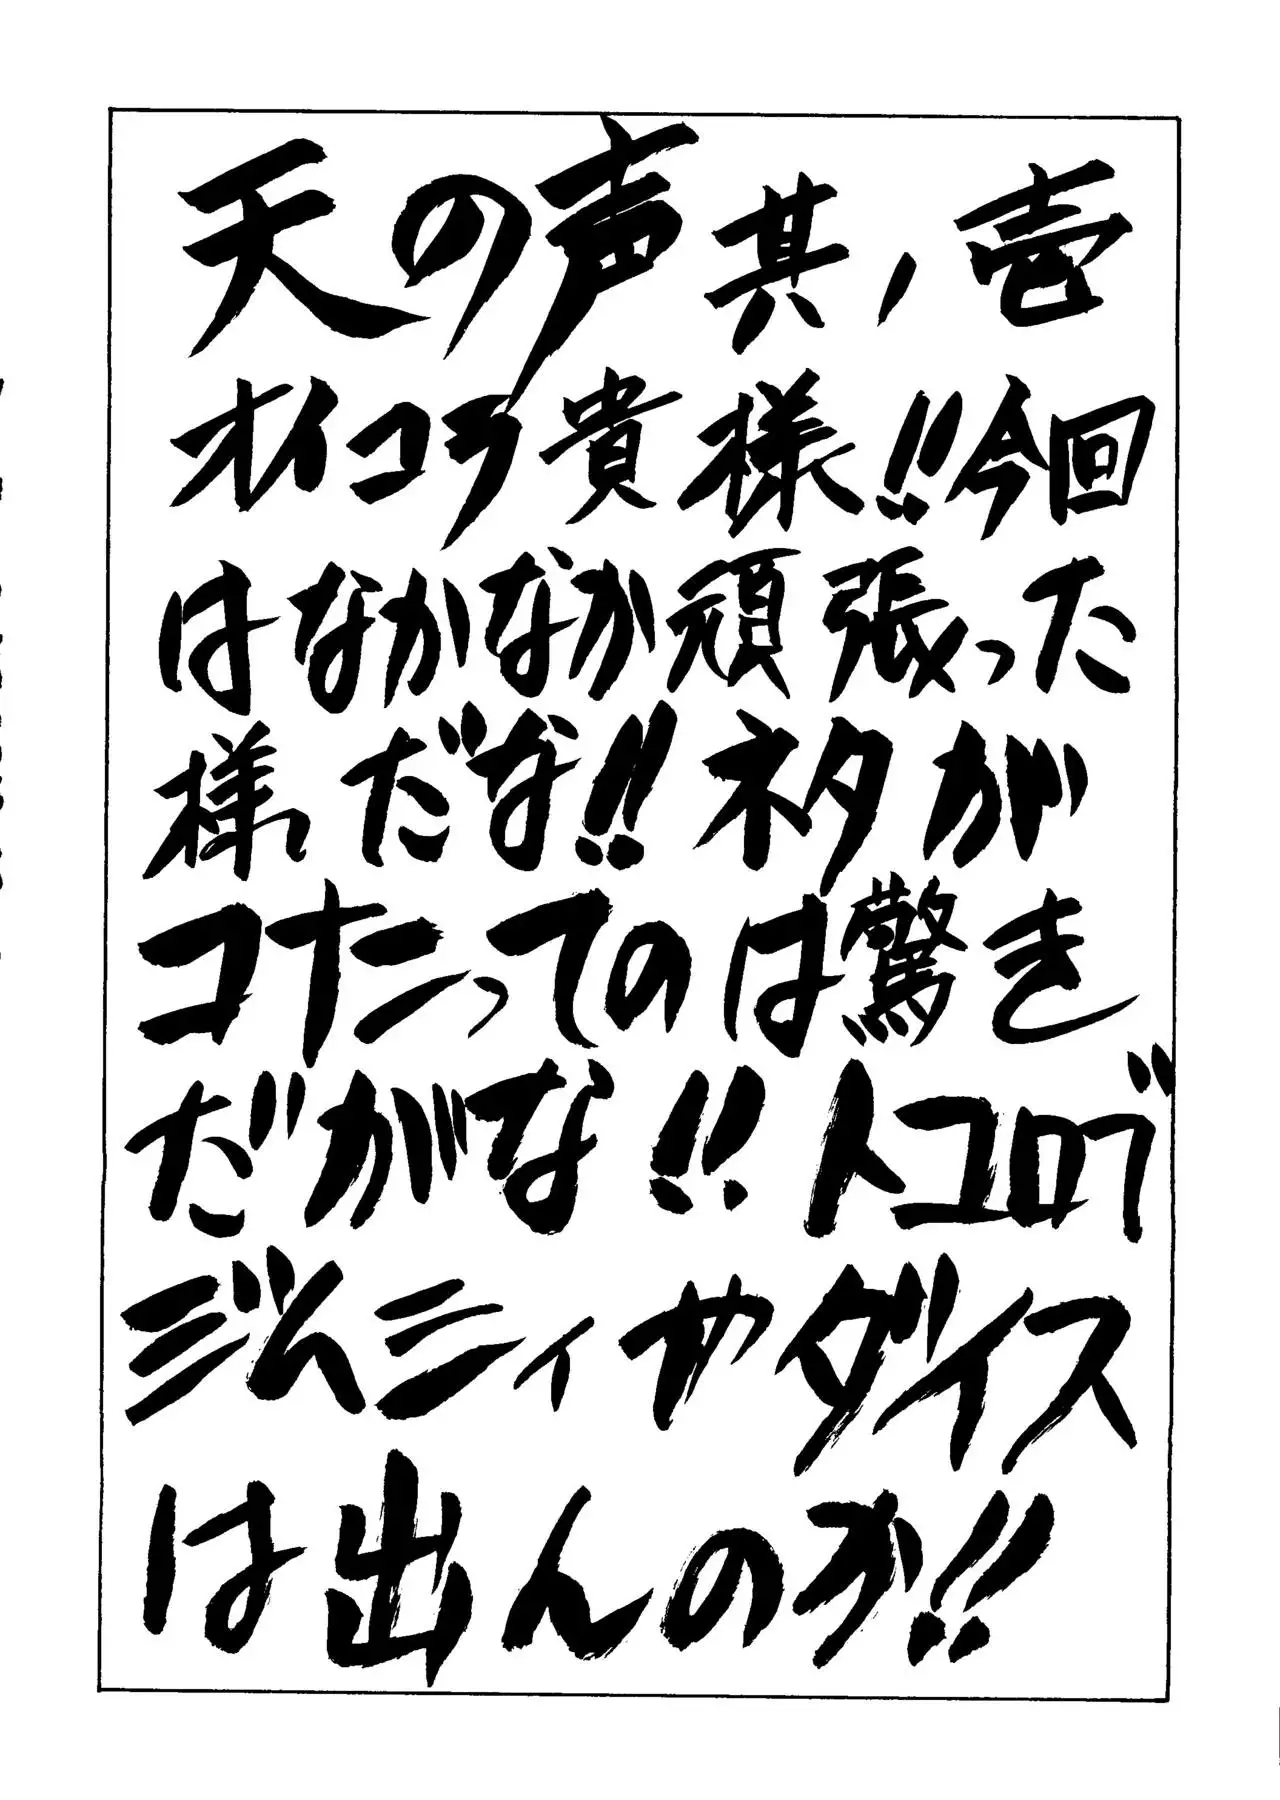 天の声其ノ壱
オイコラ貴様!!今回
はなかなか頑張った
様だな!!ネタが
コナンってのは驚き
だがな!!トコロで
ジンニィやダイス
は出んのか!!